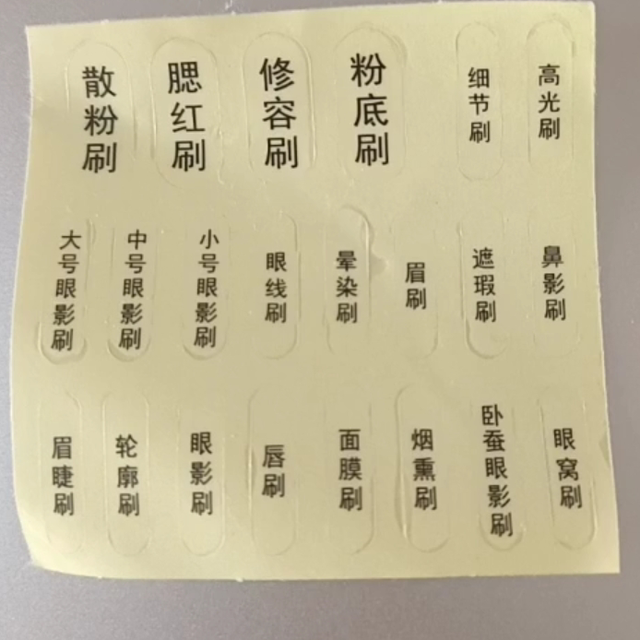 散粉刷
腮红刷
修容刷
粉底刷
细节刷
高光刷
大号眼影刷
中号眼影刷
小号眼影刷
眼线刷
晕染刷
眉刷
遮瑕刷
鼻影刷
眉睫刷
轮廓刷
眼影刷
唇刷
面膜刷
烟熏刷
卧蚕眼影刷
眼窝刷